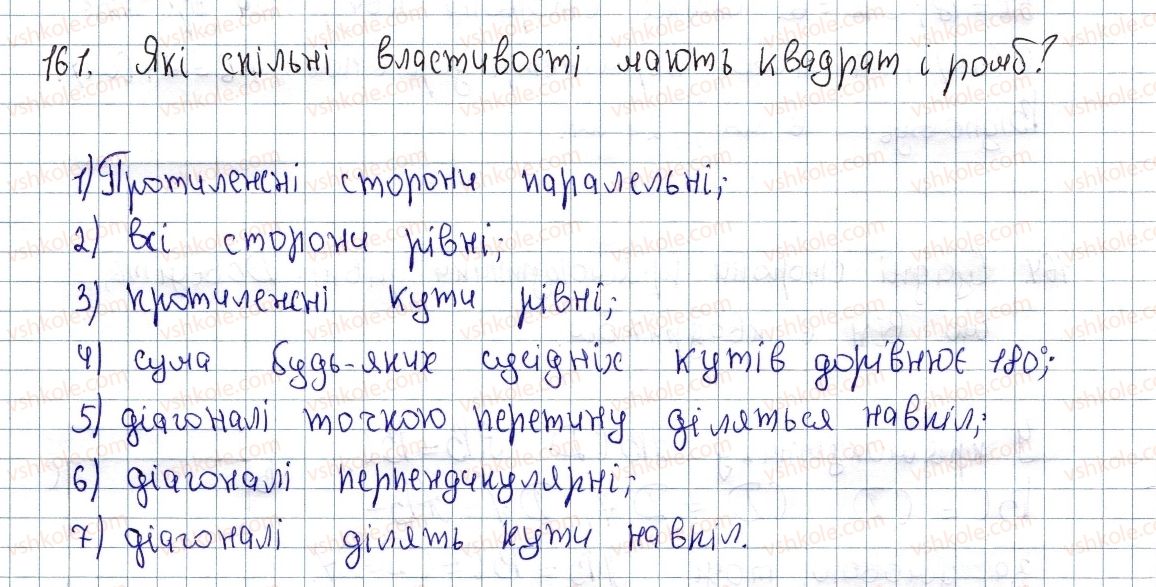 161. Які спільні властивості мають квадрат і ромб?
1) Протилежні сторони паралельні;
2) всі сторони рівні;
3) протилежні кути рівні;
4) сума будь-яких сусідніх кутів дорівнює 180°;
5) діагоналі точкою перетину діляться навпіл;
6) діагоналі перпендикулярні;
7) діагоналі ділять кути навпіл.